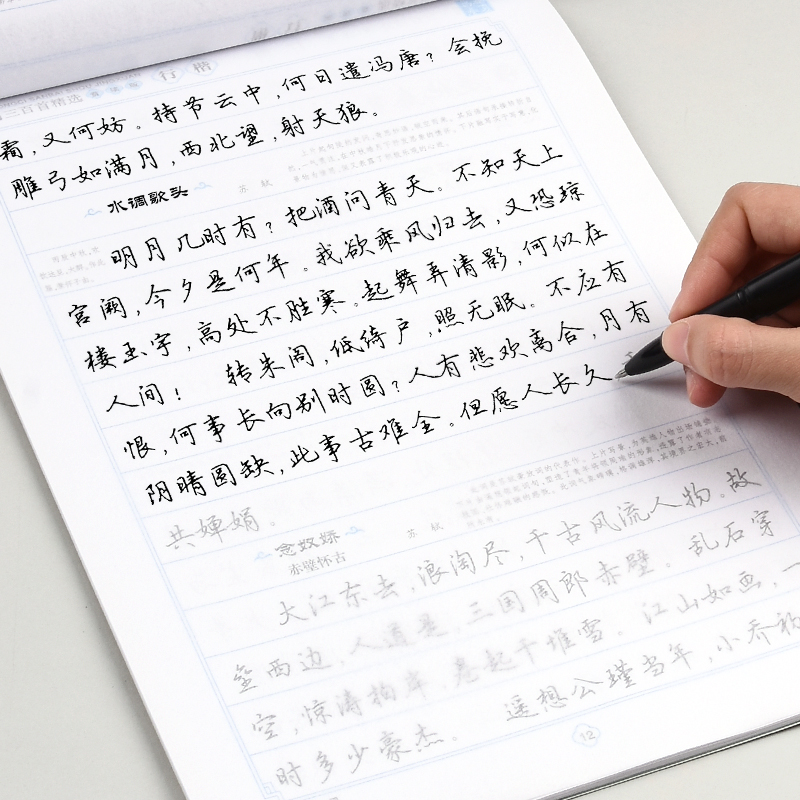 三百首精选 行楷
霜，又何妨。持节云中，何日遣冯唐？会挽
雕弓如满月，西北望，射天狼。
水调歌头
苏轼
明月几时有？把酒问青天。不知天上
宫阙，今夕是何年。我欲乘风归去，又恐琼
楼玉宇，高处不胜寒。起舞弄清影，何似在
人间！ 转朱阁，低绮户，照无眠。不应有
恨，何事长向别时圆？人有悲欢离合，月有
阴晴圆缺，此事古难全。但愿人长久
共婵娟。
念奴娇
赤壁怀古
苏轼
大江东去，浪淘尽，千古风流人物。故
垒西边，人道是，三国周郎赤壁。乱石穿
空，惊涛拍岸，卷起千堆雪。江山如画，一
时多少豪杰。 遥想公瑾当年，小乔初
12